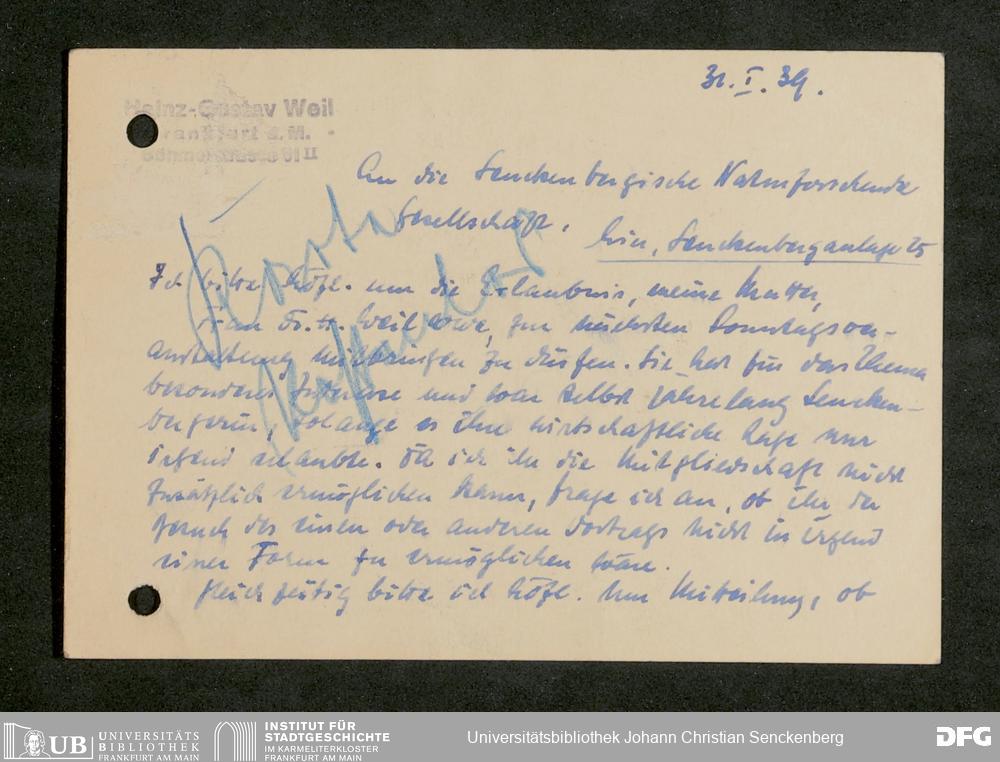 31.I.39.
Heinz-Gustav Weil
Frankfurt a. M.
II
An die Senckenbergische Naturforschende
Gesellschaft.
hier, Senckenberganlage 25
Ich bitte höfl. um die Erlaubnis, meine Mutter,
Frau Weil Wwe, zur nächsten Sonntagsver-
anstaltung mitbringen zu dürfen. Sie hat für das Thema
besonderes Interesse und war selbst jahrelang Sencken-
bergerin, solange es ihre wirtschaftliche Lage nur
irgend erlaubte. Da ich ihr die Mitgliedschaft nicht
zusätzlich ermöglichen kann, frage ich an, ob ihr der
Besuch des einen oder anderen Vortrags nicht in irgend
einer Form zu ermöglichen wäre.
Gleichzeitig bitte ich höfl. um Mitteilung, ob
Karte
UB UNIVERSITÄTS
BIBLIOTHEK
FRANKFURT AM MAIN
INSTITUT FÜR
STADTGESCHICHTE
IM KARMELITERKLOSTER
FRANKFURT AM MAIN
Universitätsbibliothek Johann Christian Senckenberg
DFG